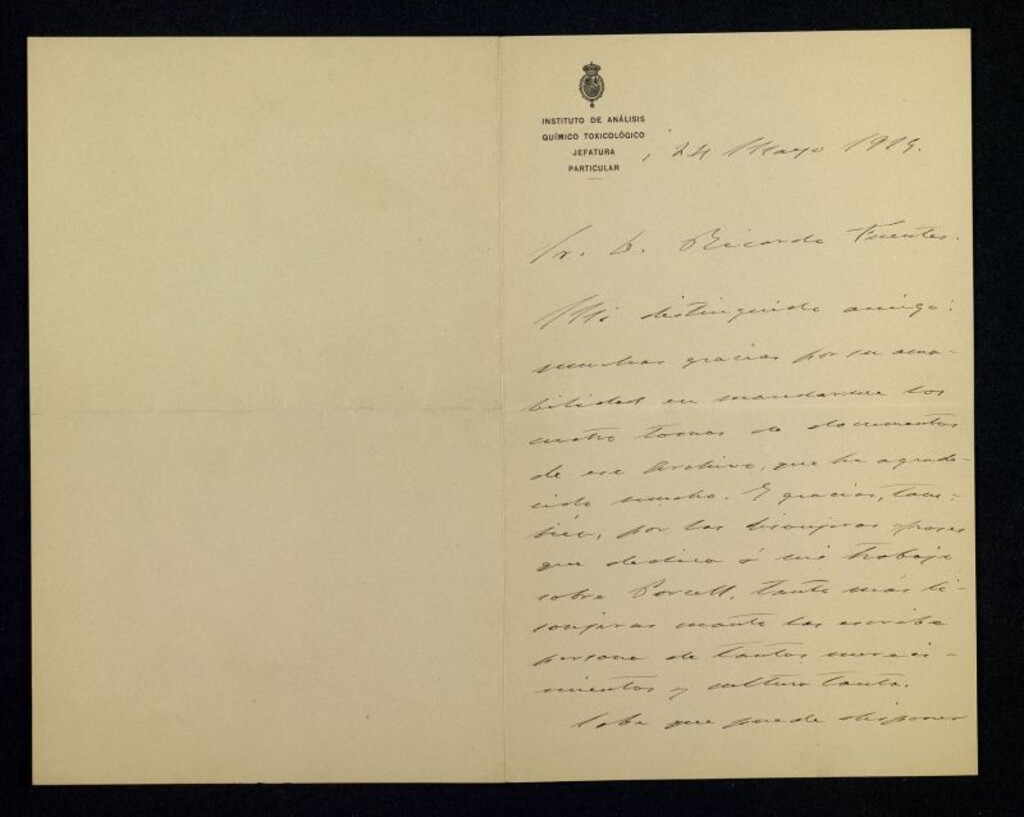 INSTITUTO DE ANÁLISIS
QUÍMICO TOXICOLÓGICO
JEFATURA
PARTICULAR
24 Mayo 1919.
Sr. D. Ricardo Fuentes.
Mi distinguido amigo:
muchas gracias por su ama-
bilidad en mandarme los
cuatro tomos de documentos
de ese Archivo, que he agrade-
cido mucho. Y gracias, tam-
bién, por las lisonjeras frases
que dedica á mi trabajo
sobre Porcell, tanto más li-
sonjeras cuanto las escribe
persona de tantos mereci-
mientos y cultura tanta.
Sabe que puede disponer